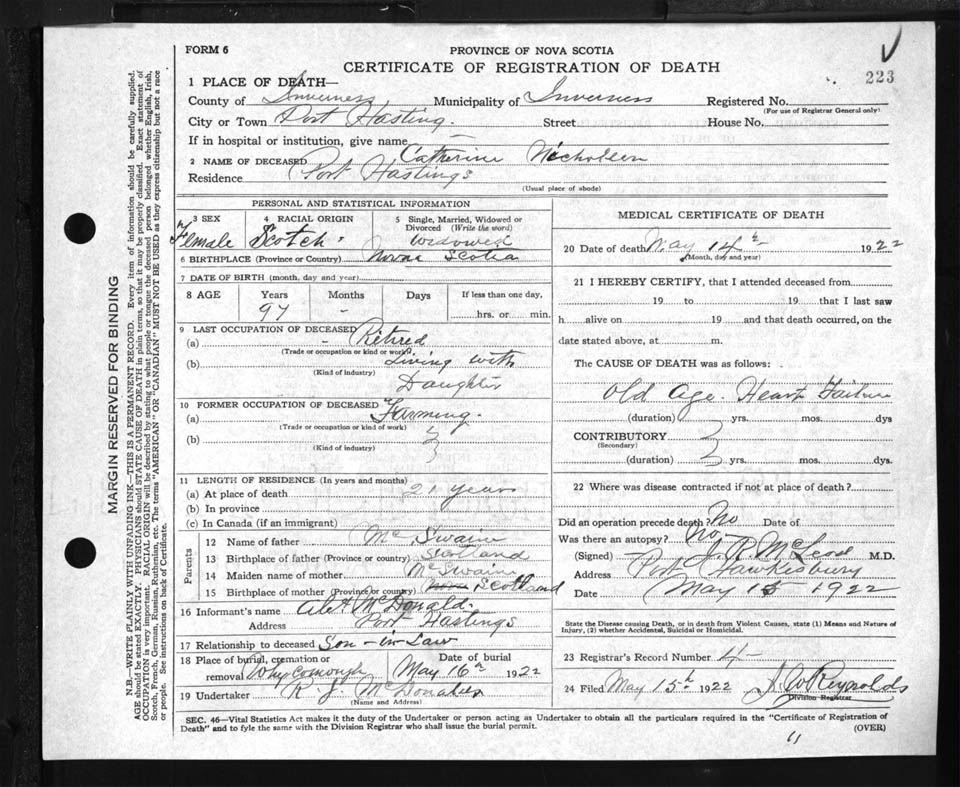 FORM 6
PROVINCE OF NOVA SCOTIA
CERTIFICATE OF REGISTRATION OF DEATH
223
1 PLACE OF DEATH—
County of Inverness Municipality of Inverness Registered No.
(For use of Registrar General only)
City or Town Port Hasting. Street House No.
If in hospital or institution, give name —
2 NAME OF DECEASED Catherine Nicholson
Residence Port Hastings
(Usual place of abode)
PERSONAL AND STATISTICAL INFORMATION
3 SEX
Female
4 RACIAL ORIGIN
Scotch
5 Single, Married, Widowed or Divorced (Write the word)
Widowed
6 BIRTHPLACE (Province or Country) Nova Scotia
7 DATE OF BIRTH (month, day and year)
8 AGE Years Months Days If less than one day,
97 - hrs. or min.
9 LAST OCCUPATION OF DECEASED
(a) - Retired
(Trade or occupation or kind or work)
(b) Living with
(Kind of industry)
Daughter
10 FORMER OCCUPATION OF DECEASED
(a) Farming.
(Trade or occupation or kind of work)
(b)
(Kind of industry)
11 LENGTH OF RESIDENCE (In years and months)
(a) At place of death 21 years
(b) In province
(c) In Canada (if an immigrant)
Parents
12 Name of father Mc Swain
13 Birthplace of father (Province or country) Scotland
14 Maiden name of mother McSwain
15 Birthplace of mother (Province or country) Scotland
16 Informant's name McDonald.
Address Port Hastings
17 Relationship to deceased Son-in-Law
18 Place of burial, cremation or removal Date of burial
May 16th 1922
19 Undertaker R. J.
(Name and Address)
MEDICAL CERTIFICATE OF DEATH
20 Date of death May 14th 1922
(Month, day and year)
21 I HEREBY CERTIFY, that I attended deceased from
19 to 19 that I last saw
h alive on 19 and that death occurred, on the
date stated above, at m.
The CAUSE OF DEATH was as follows:
Old Age. Heart Failure
(duration) yrs. mos. dys.
CONTRIBUTORY
(Secondary)
(duration) yrs. mos. dys.
22 Where was disease contracted if not at place of death?
Did an operation precede death? No Date of
Was there an autopsy? No.
(Signed) J. R. McLeod M.D.
Address Port Hawkesbury
Date May 15 1922
State the Disease causing Death, or in death from Violent Causes, state (1) Means and Nature of
Injury, (2) whether Accidental, Suicidal or Homicidal.
23 Registrar's Record Number 4
24 Filed May 15th 1922 Reynolds
Division Registrar
SEC. 46—Vital Statistics Act makes it the duty of the Undertaker or person acting as Undertaker to obtain all the particulars required in the "Certificate of Registration of
Death" and to fyle the same with the Division Registrar who shall issue the burial permit.
(OVER)
MARGIN RESERVED FOR BINDING
N.B.—WRITE PLAINLY WITH UNFADING INK—THIS IS A PERMANENT RECORD. Every item of information should be carefully supplied.
AGE should be stated EXACTLY. PHYSICIANS should STATE CAUSE OF DEATH in plain terms, so that it may be properly classified. Exact statement of
OCCUPATION is very important. RACIAL ORIGIN will be described by stating to what people or tongue the deceased person belonged whether English, Irish,
Scotch, French, German, Russian, Ruthenian, etc. The terms "AMERICAN" OR "CANADIAN" MUST NOT BE USED as they express citizenship but not a race
or people. See instructions on back of Certificate.